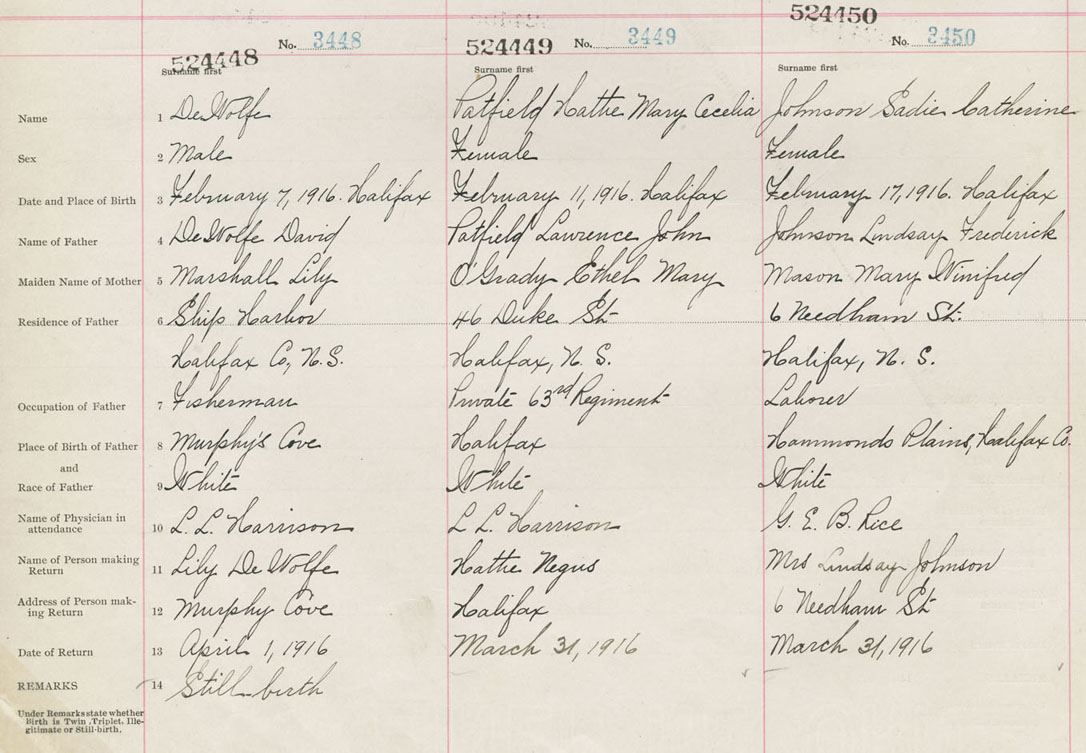 524448 No. 3448 524449 No. 3449 524450 No. 3450
Surname first Surname first Surname first
Name 1 DeWolfe Patfield Hattie Mary Cecelia Johnson Sadie Catherine
Sex 2 Male Female Female
Date and Place of Birth 3 February 7, 1916. Halifax February 11, 1916. Halifax February 17, 1916. Halifax
Name of Father 4 DeWolfe David Patfield Lawrence John Johnson Lindsay Frederick
Maiden Name of Mother 5 Marshall Lily O'Grady Ethel Mary Mason Mary Winifred
Residence of Father 6 Ship Harbor 46 Duke St. 6 Needham St.
Halifax Co, N.S. Halifax, N. S. Halifax, N. S.
Occupation of Father 7 Fisherman Private 63rd Regiment Laborer
Place of Birth of Father 8 Murphy's Cove Halifax Hammonds Plains, Halifax Co.
and
Race of Father 9 White White White
Name of Physician in
attendance 10 L. L. Harrison L L. Harrison G. E. B. Rice
Name of Person making
Return 11 Lily DeWolfe Hattie Negus Mrs Lindsay Johnson
Address of Person mak-
ing Return 12 Murphy Cove Halifax 6 Needham St
Date of Return 13 April 1, 1916 March 31, 1916 March 31, 1916
REMARKS 14 Still-birth
Under Remarks state whether
Birth is Twin, Triplet, Ille-
gitimate or Still-birth.